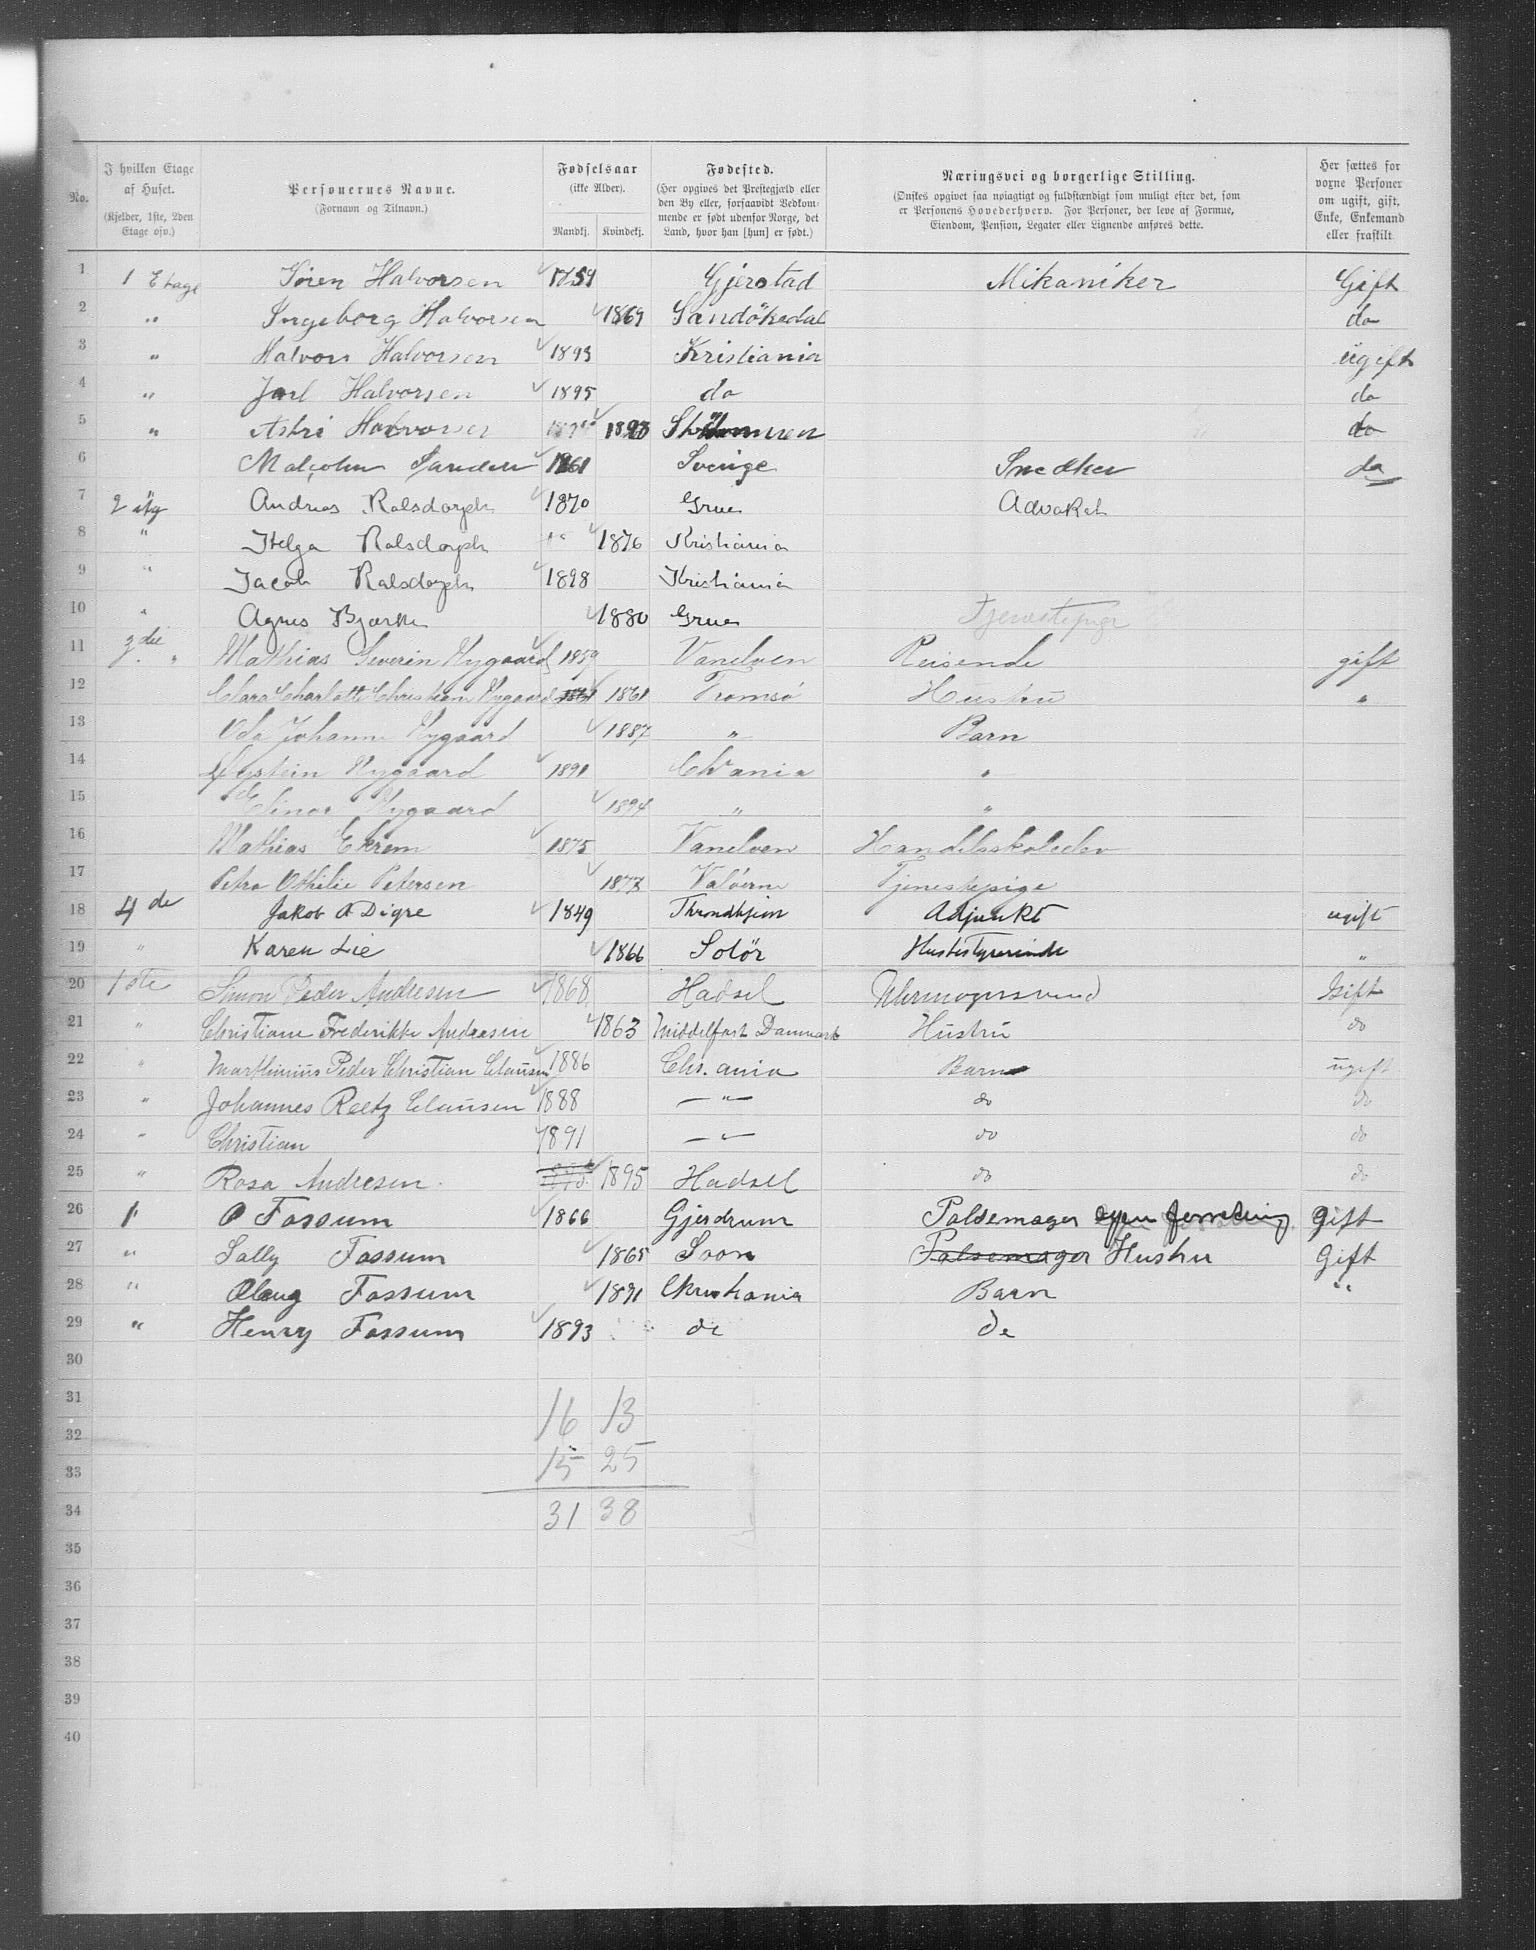 No. I hvilken Etage af Huset. (Kjelder, 1ste, 2den Etage osv.) Personernes Navne. (Fornavn og Tilnavn.) Fødselsaar (ikke Alder). Mandkj. Kvindekj. Fødested. (Her opgives det Prestegjæld eller den By eller, forsaavidt Vedkommende er født udenfor Norge, det Land, hvor han [hun] er født.) Næringsvei og borgerlige Stilling. (Ønskes opgivet saa nøiagtigt og fuldstændigt som muligt efter det, som er Personens Hovederhverv. For Personer, der leve af Formue, Eiendom, Pension, Legater eller Lignende anføres dette. Her sættes for voxne Personer om ugift, gift, Enke, Enkemand eller fraskilt
1 1 Etage Søren Halvorsen 1859 Gjerstad Mikaniker Gift
2 " Ingeborg Halvorsen 1869 Sandökedal do
3 " Halvor Halvorsen 1893 Kristiania ugift
4 " Jarl Halvorsen 1895 do do
5 " Astri Halvorsen 1898 do
6 Malcolm 1861 Sverige Snedker do
7 2 Andreas Ralsdorph 1870 Grue Advokat
8 " Helga Ralsdorph 1876 Kristiania
9 " Jacob Ralsdorph 1898 Kristiania
10 " Agnes Bjørke 1880 Grue Tjenestepige
11 3die " Mathias Severin Nygaard 1859 Vanelven Reisende gift
12 Clara Charlotte Christiane Nygaard 1861 Tromsø Hustru "
13 Oda Johanne Nygaard 1887 " Barn
14 Øystein Nygaard 1891 Chrania "
15 Elinor Nygaard 1894 " "
16 Mathias Ekrem 1875 Vanelven Handelsskoleelev
17 Petra Othilie Petersen 1877 Valøerne Tjenestepige
18 4de Jakob A Digre 1849 Throndhjem Adjunkt ugift
19 " Karen Lie 1866 Solör Husbestyrerinde "
20 1ste Simon Peder Andresen 1868 Hadsel Uhrmagersvend Gift
21 " Christiane Frederikke Andresen 1863 Middelfart Danmark Hustru do
22 " Marthinius Peder Christian Clausen 1886 Chr.ania Barn ugift
23 " Johannes Reetz Clausen 1888 — " — do do
24 " Christian 1891 — " — do do
25 " Rosa Andresen 1895 Hadsel do do
26 1 O Fossum 1866 Gjerdrum Pølsemager egen forretning gift
27 " Sally Fossum 1865 Pølsemager Hustru Gift
28 " Olaug Fossum 1891 Christiania Barn "
29 " Henry Fossum 1893 do do
30
31 16 13
32
33 15 25
34 31 38
35
36
37
38
39
40